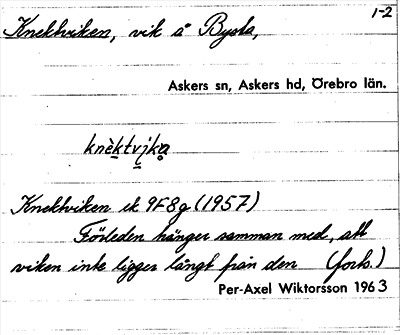 1-2
Knektviken, vik å Bysta,
Askers sn, Askers hd, Örebro län.
knèktvịkạ
Knektviken ek 9F8g (1957)
Förleden hänger samman med, att
viken inte ligger långt från den (forts.)
Per-Axel Wiktorsson 1963